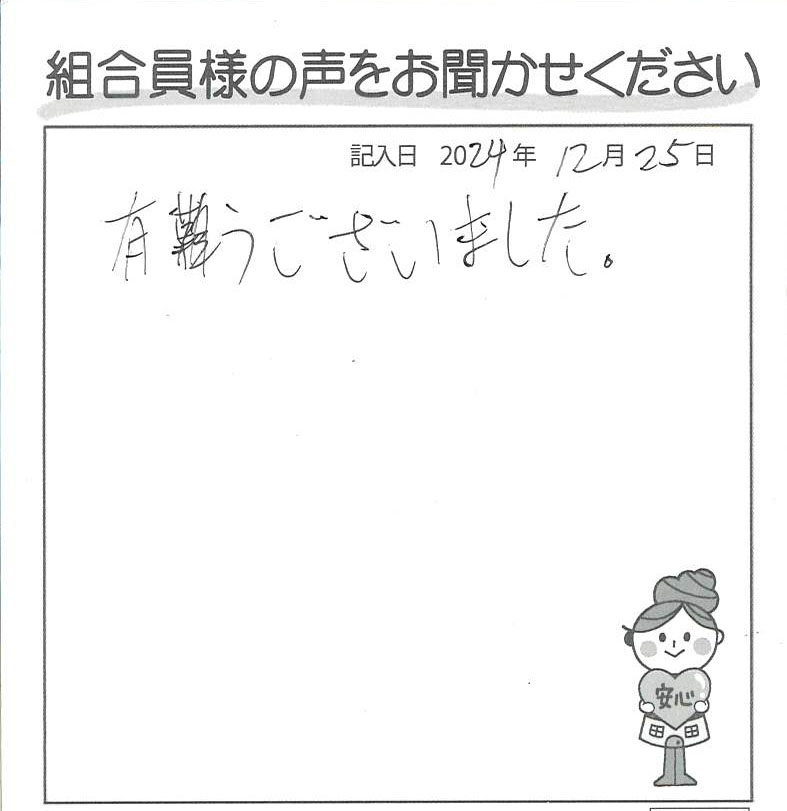 組合員様の声をお聞かせください
記入日 2024年 12月25日
有難うございました。
安心